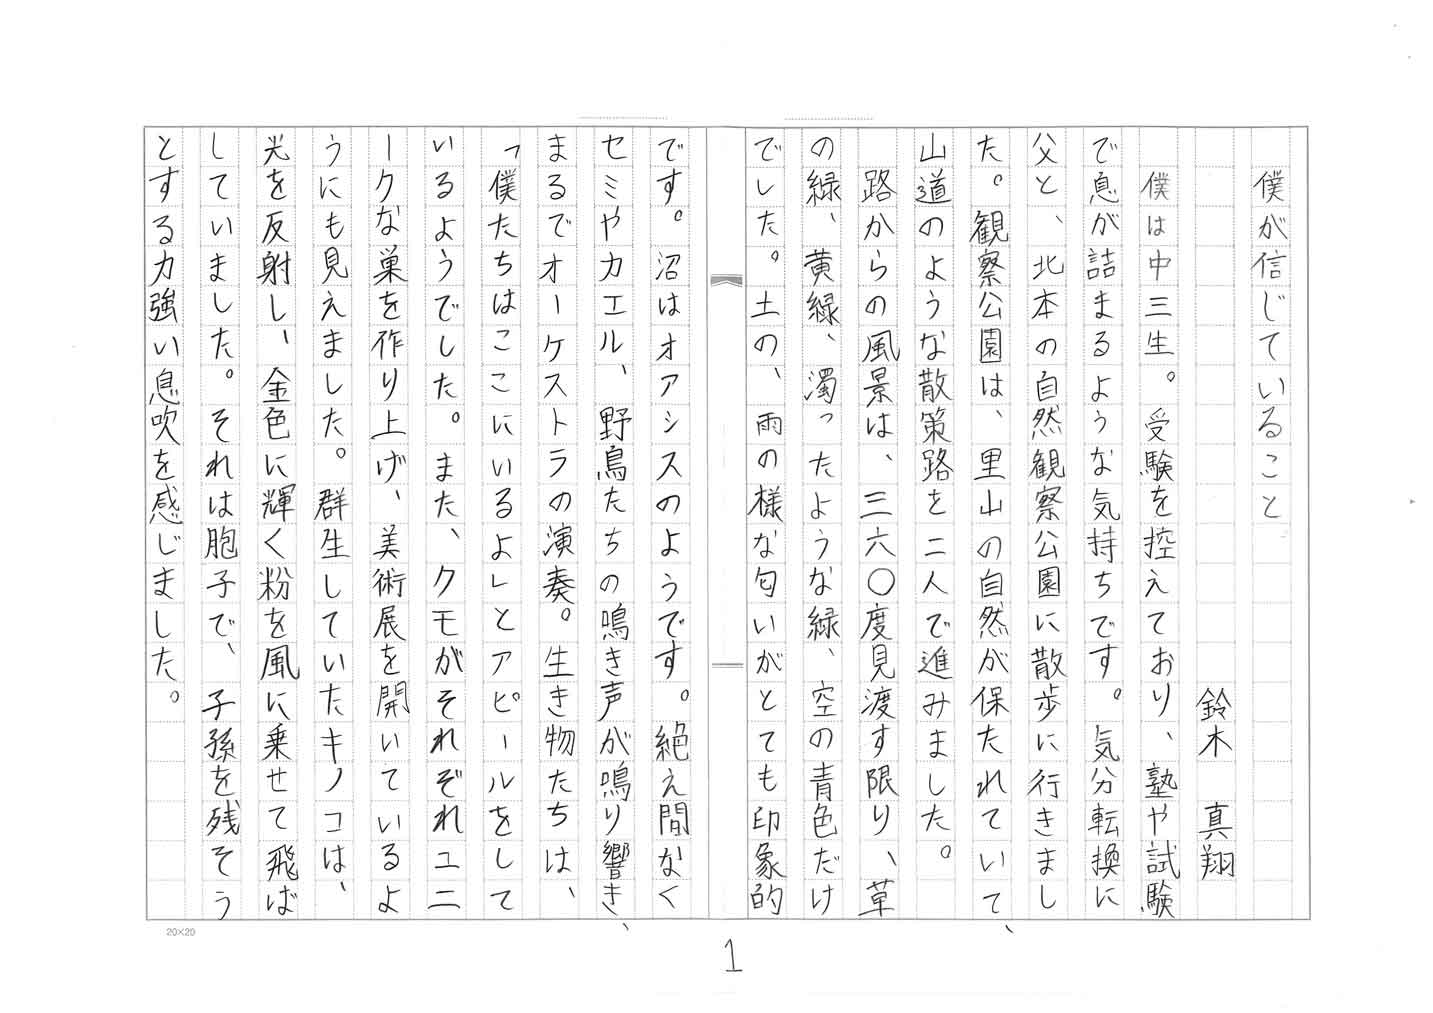 僕が信じていること
鈴木　真翔
僕は中三生。受験を控えており、塾や試験
で息が詰まるような気持ちです。気分転換に
父と、北本の自然観察公園に散歩に行きまし
た。観察公園は、里山の自然が保たれていて、
山道のような散策路を二人で進みました。
路からの風景は、三六〇度見渡す限り、草
の緑、黄緑、濁ったような緑、空の青色だけ
でした。土の、雨の様な匂いがとても印象的
です。沼はオアシスのようです。絶え間なく
セミやカエル、野鳥たちの鳴き声が鳴り響き、
まるでオーケストラの演奏。生き物たちは、
「僕たちはここにいるよ」とアピールをして
いるようでした。また、クモがそれぞれユニ
ークな巣を作り上げ、美術展を開いているよ
うにも見えました。群生していたキノコは、
光を反射し、金色に輝く粉を風に乗せて飛ば
していました。それは胞子で、子孫を残そう
とする力強い息吹を感じました。
20×20
1